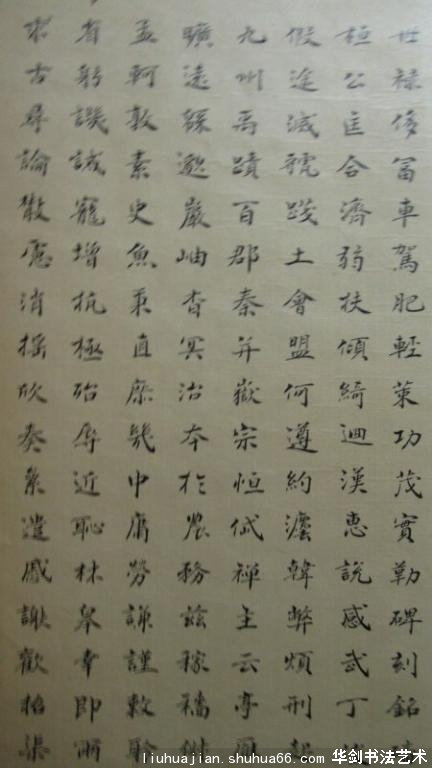 世祿侈富車駕肥輕策功茂實勒碑刻銘
桓公匡合濟弱扶傾綺迴漢惠說感武丁
假途滅虢踐土會盟何遵約灋韓弊煩刑起
九州禹蹟百郡秦并嶽宗恒岱禪主云亭雁
曠遠緜邈巖岫杳冥治本於農務茲稼穡俶
孟軻敦素史魚秉直庶幾中庸勞謙謹敕聆
省躬譏誡寵增抗極殆辱近恥林皋幸即兩
求古尋論散慮消搖欣奏累遣慼謝歡招渠
liuhuajian.shuhua66.com 华剑书法艺术